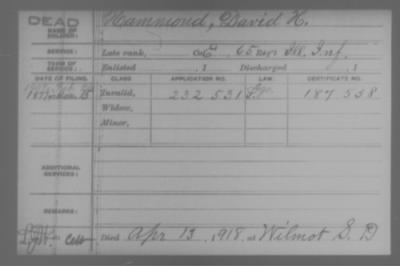 DEAD
NAME OF SOLDIER:
Hammond, David H.
SERVICE:
Late rank, Co. E, 65 Reg't Ill. Inf.
TERM OF SERVICE:
Enlisted , 1 Discharged , 1
DATE OF FILING. CLASS. APPLICATION NO. LAW. CERTIFICATE NO.
1877 Invalid, 232 531 187 558
Widow,
Minor,
ADDITIONAL SERVICES:
REMARKS:
Died Apr 13, 1918, at Wilmot S. D